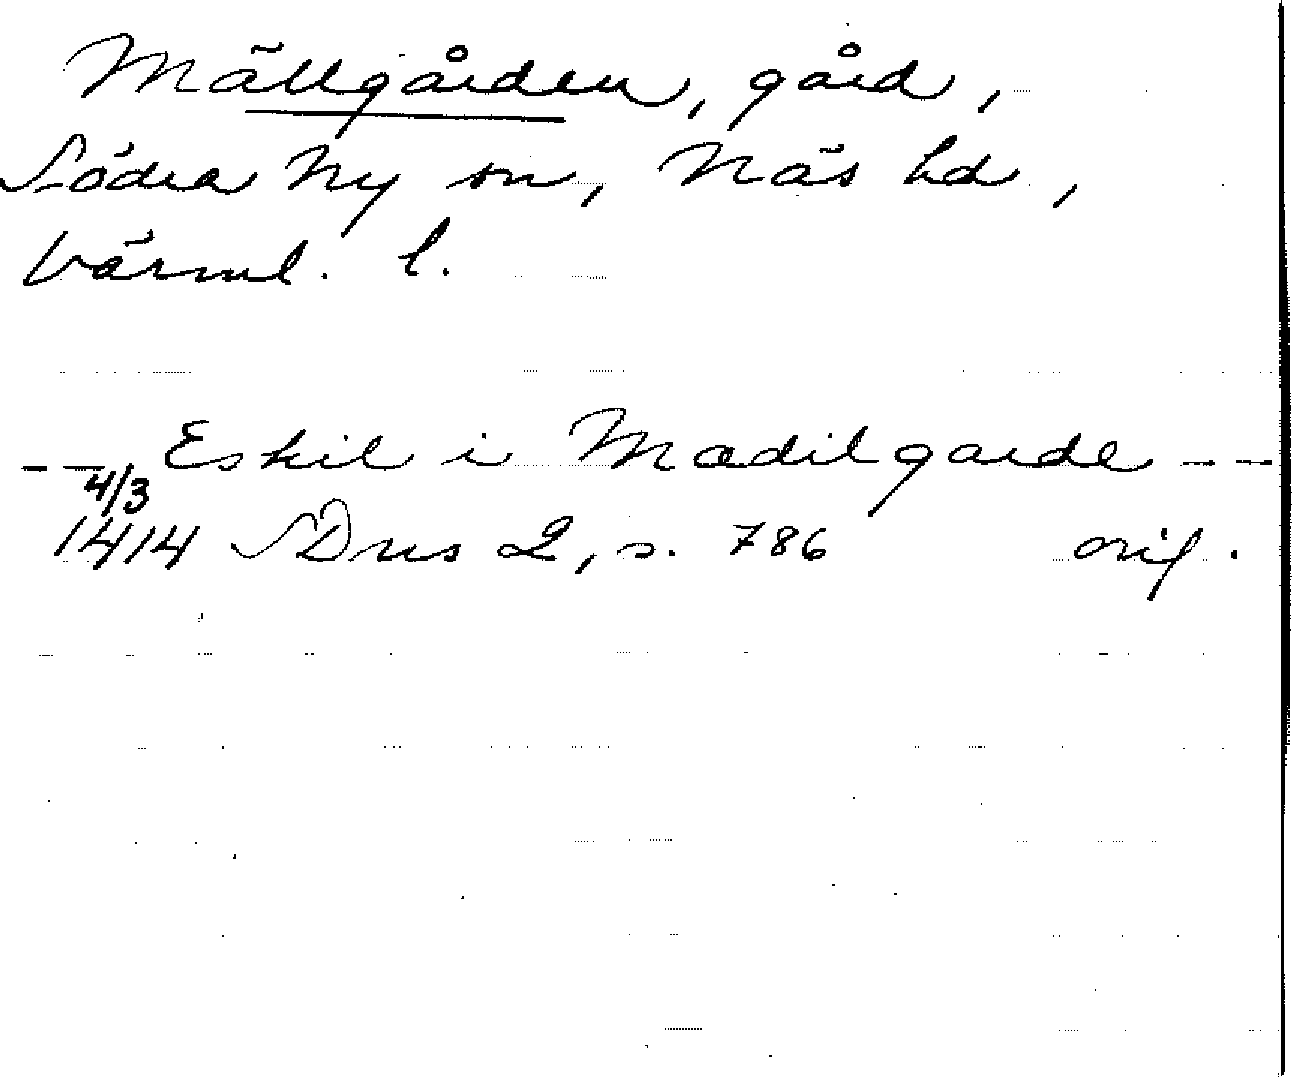 Mällgården, gård,
Södra Ny sn, Näs hd,
Värml. l.
-- Eskil i Mædilgarde --
4/3
1414 SDns 2, s. 786 orig.